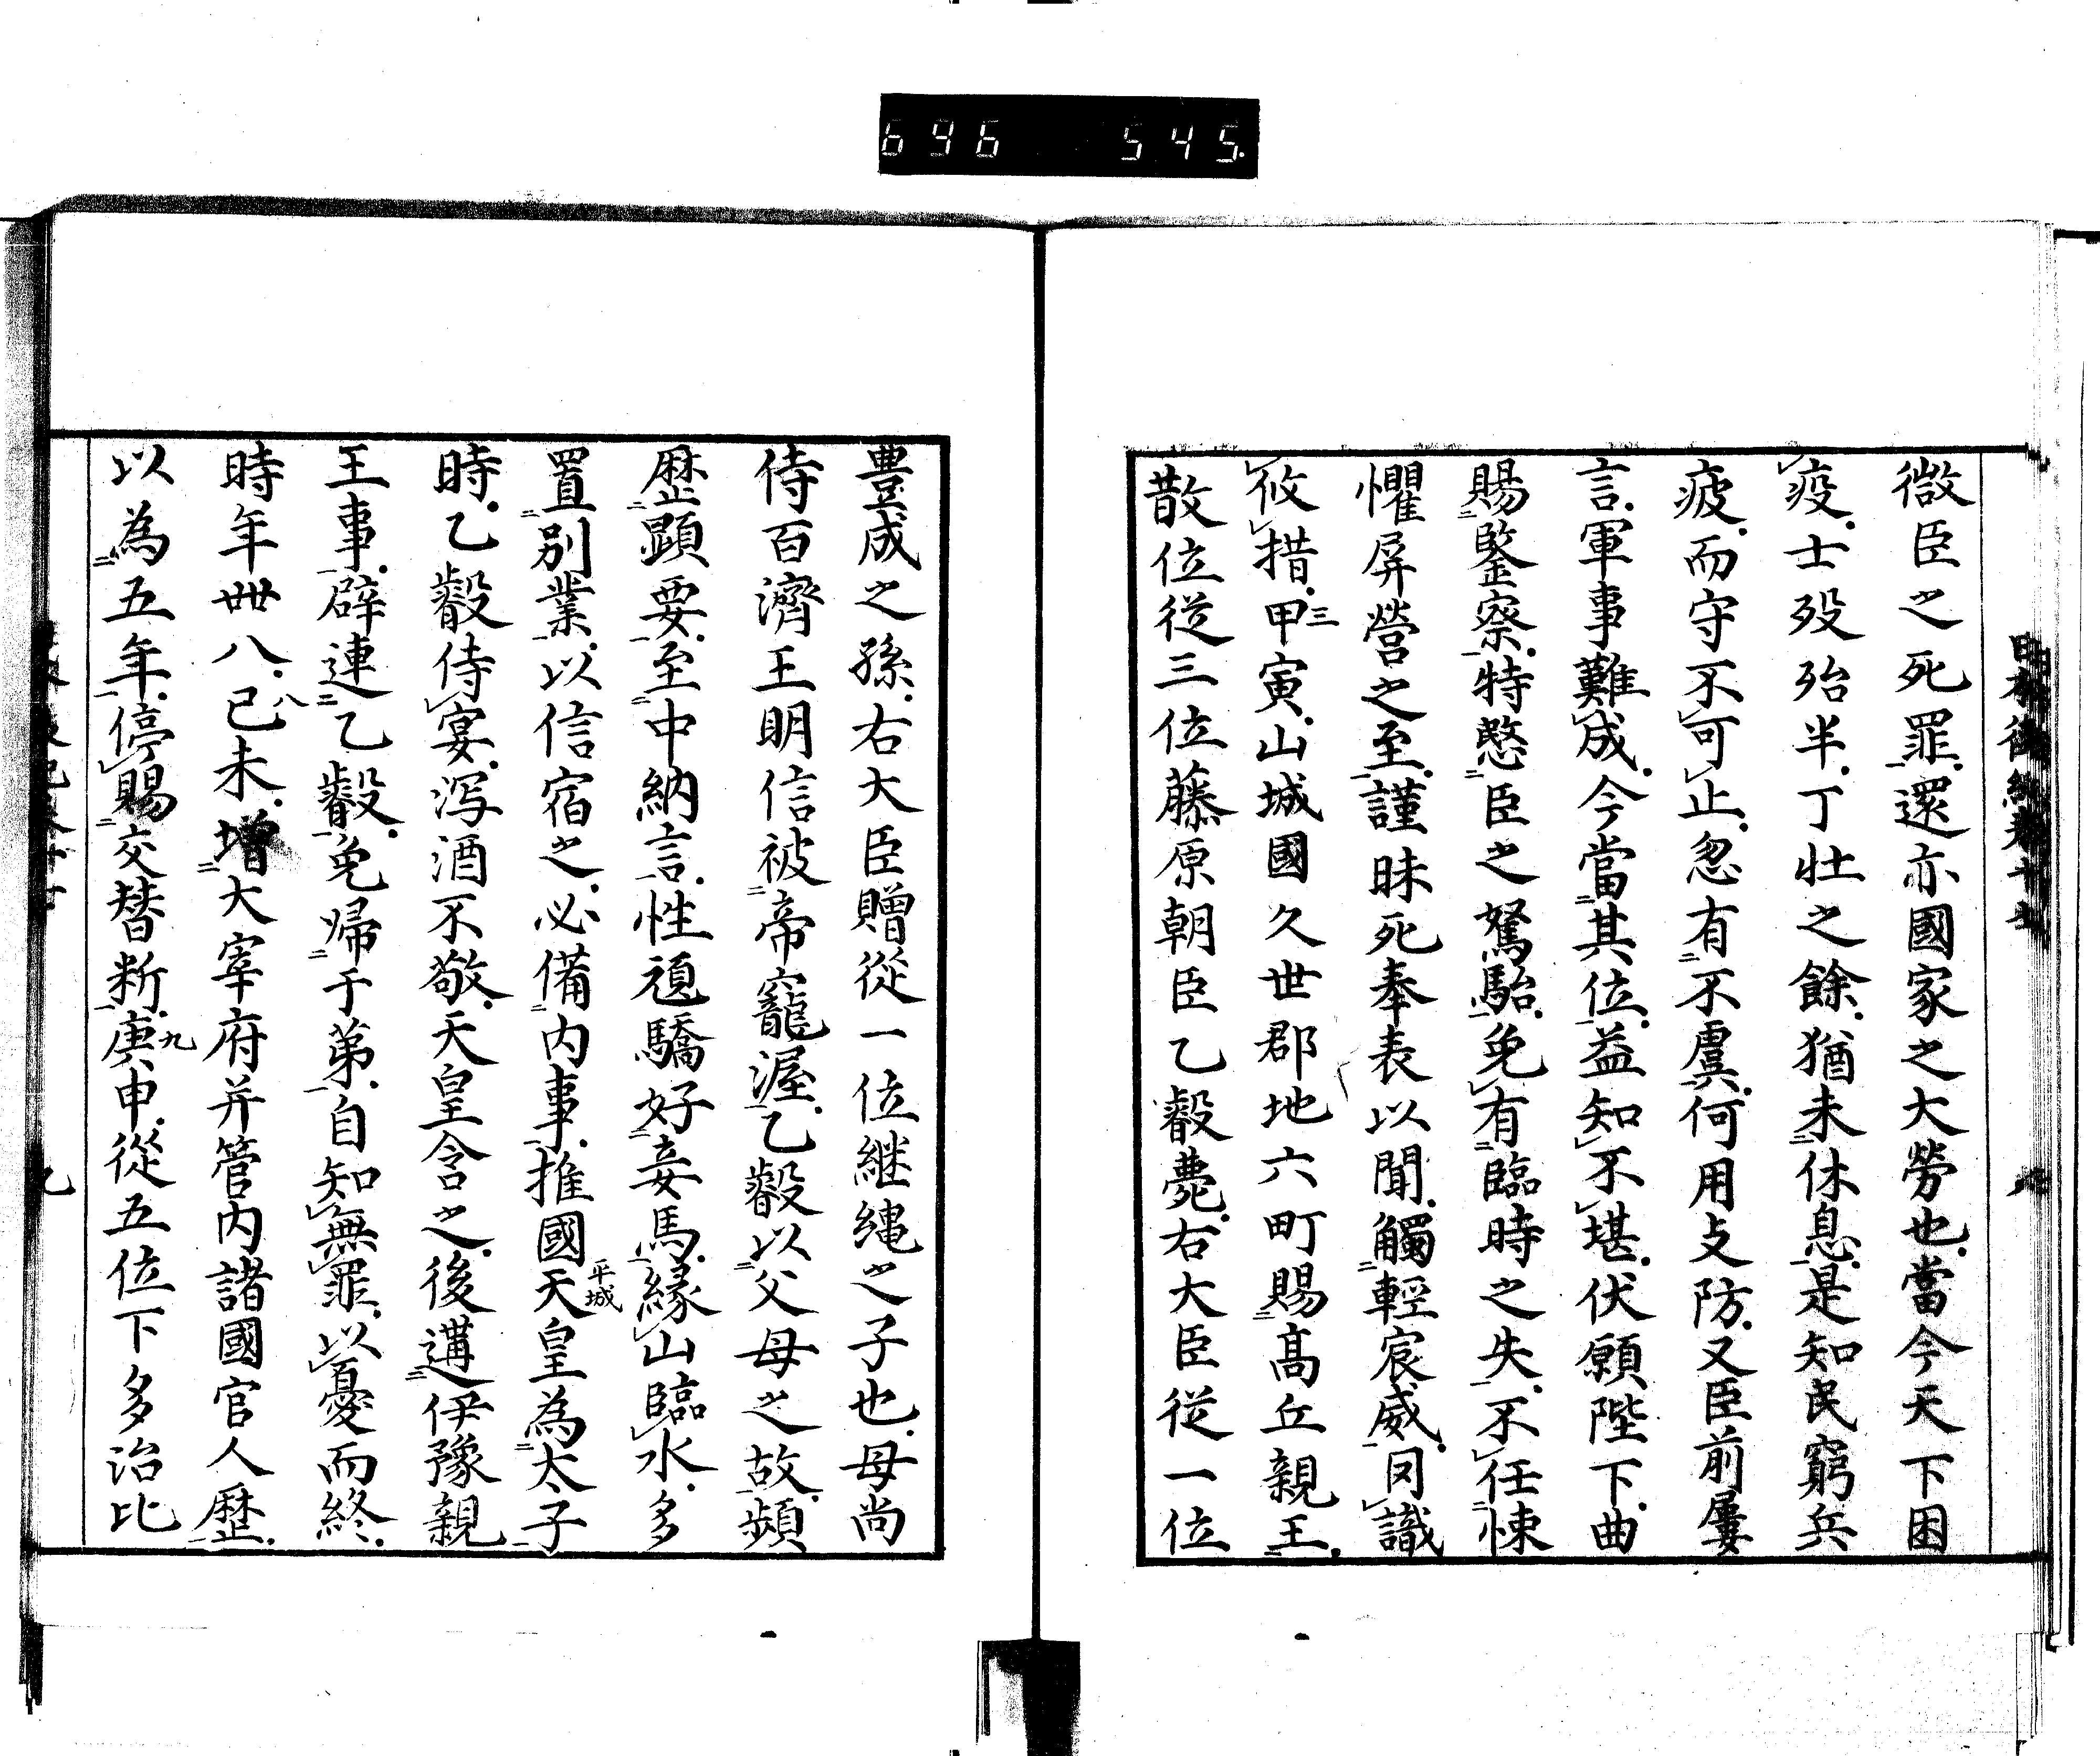 696 545
微臣之死罪還亦國家之大勞也當今天下困
疫士歿殆半丁壮之餘猶未休息是知民窮兵
疲而守不可止忽有不虞何用支防又臣前屢
言軍事難成今當其位益知不堪伏願陛下曲
賜鑒察特愍臣之駑駘免有臨時之失不任悚
懼屏營之至謹昧死奉表以聞觸輕宸威罔識
攸措甲三寅山城國久世郡地六町賜髙丘親王
散位従三位藤原朝臣乙叡薨右大臣従一位
豊成之孫右大臣贈從一位継縄之子也母尚
侍百濟王明信被帝寵渥乙叡以父母之故頻
歴顕要至中納言性頑驕好妾馬縁山臨水多
置別業以信宿之必備内事推國天平城皇為太子
時乙叡侍宴瀉酒不敬天皇含之後遘伊豫親
王事辟連乙叡免帰于苐自知無罪以憂而終
時年卌八己八未増大宰府并管内諸國官人歴
以為五年停賜交替料庚九申從五位下多治比